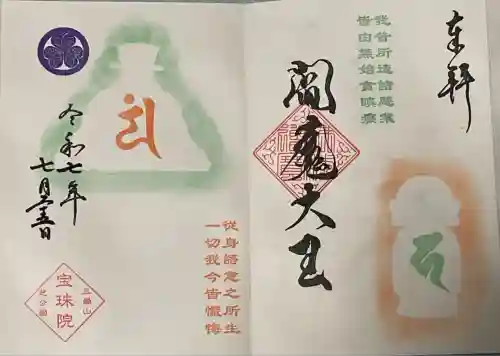 奉拝
我昔所造諸悪業
皆由無始貪瞋癡
閻魔大王
從身語意之所生
一切我今皆懺悔
令和七年
七月二十五日
三縁山
宝珠院
芝公園